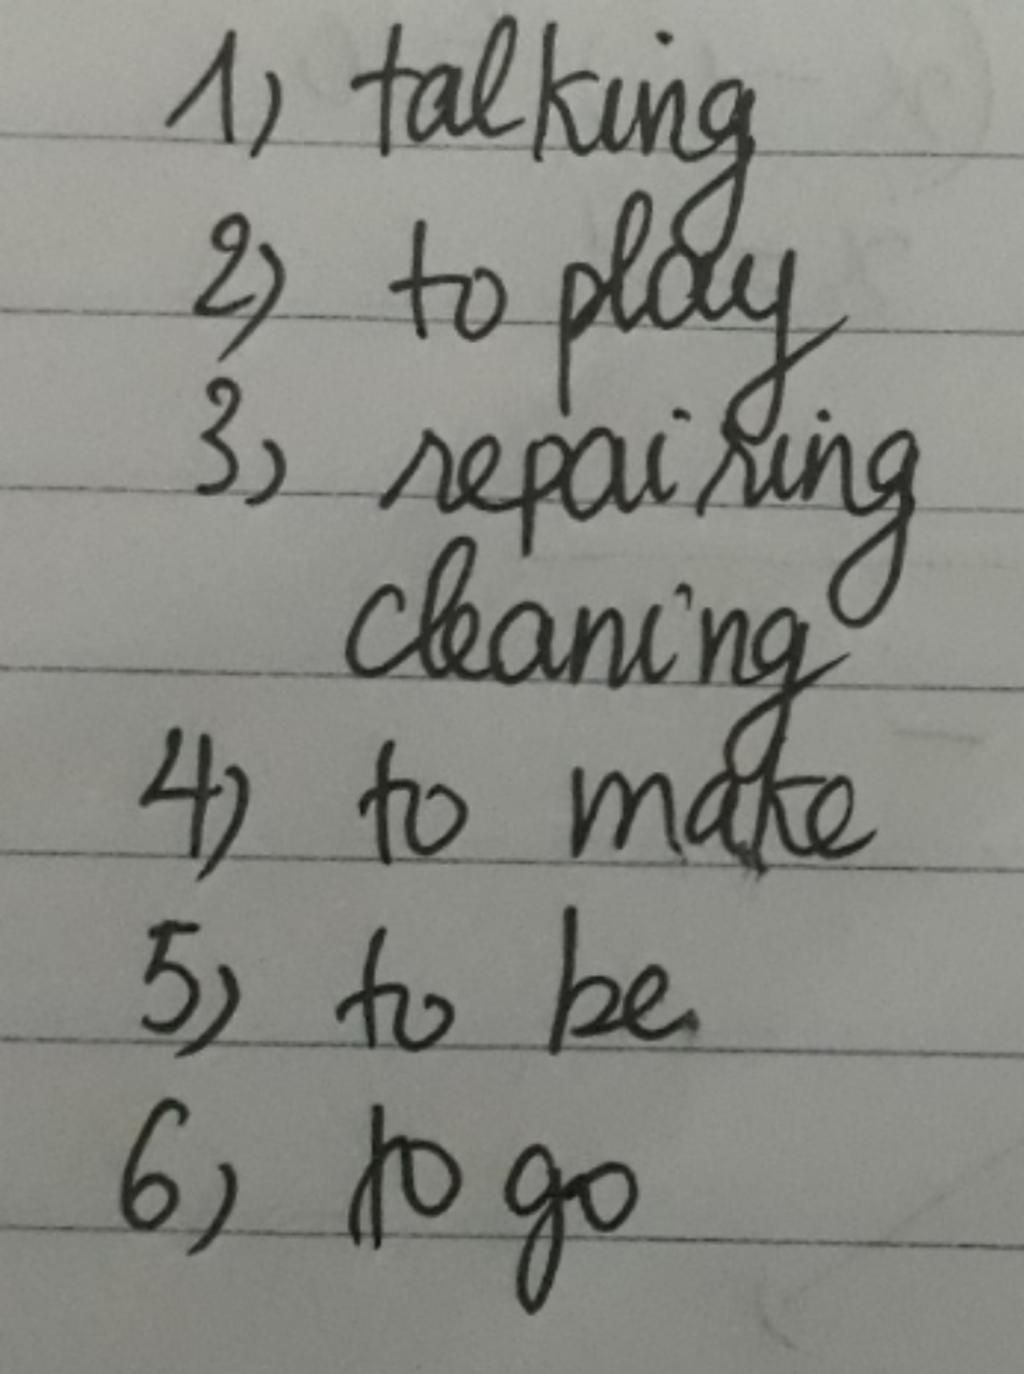 1) talking
2) to play
3) repairing
cleaning
4) to make
5) to be
6) to go